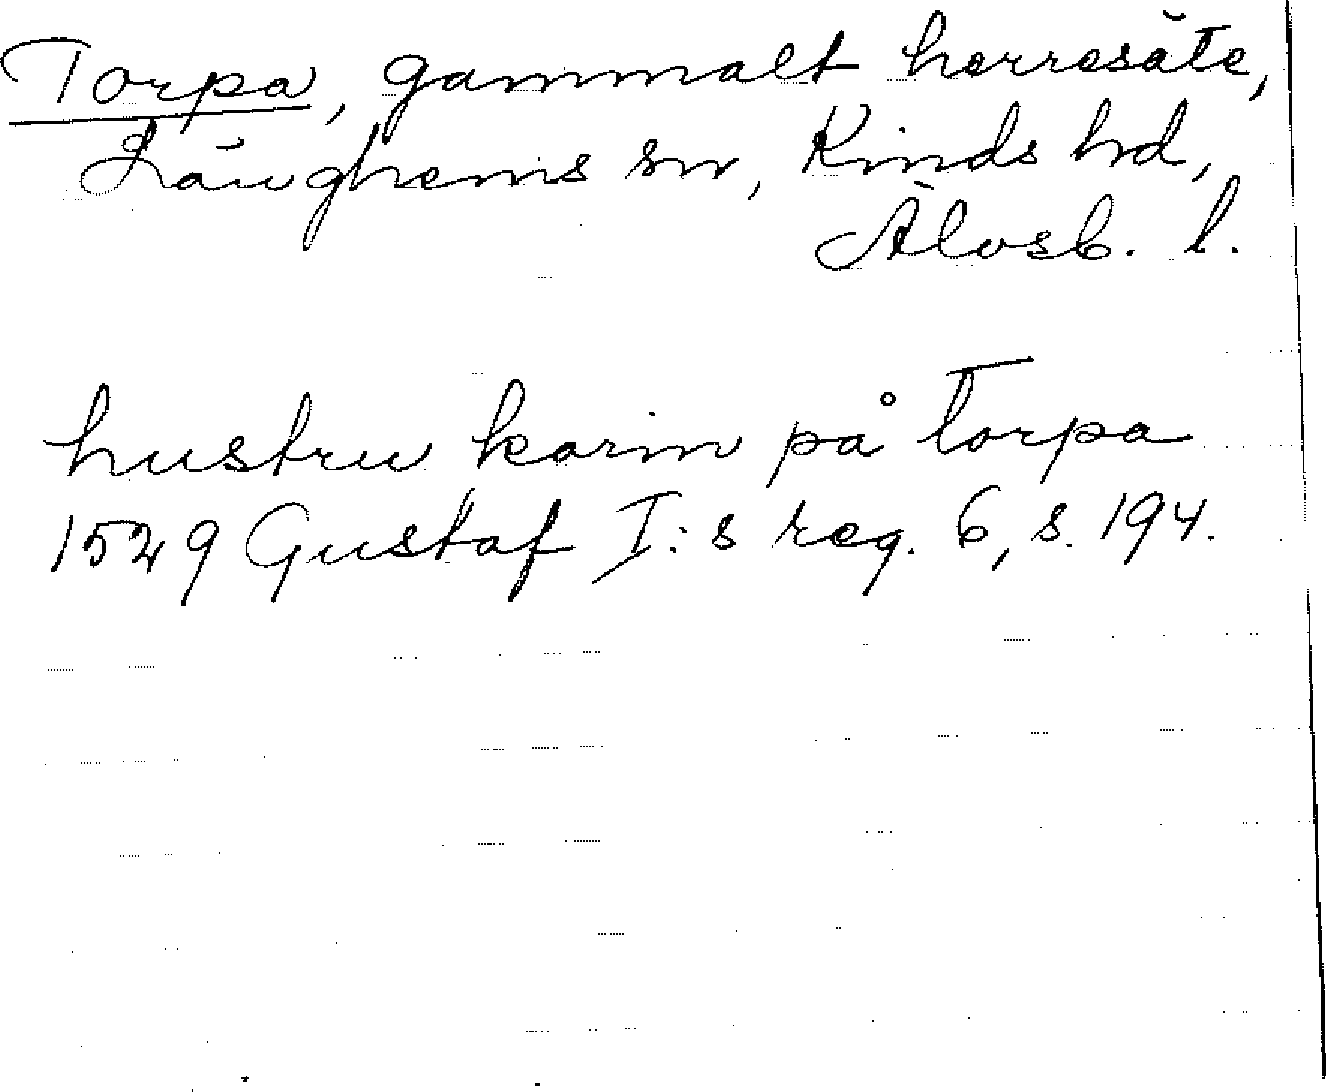 Torpa, gammalt herresäte,
Länghems sn, Kinds hd,
Älvsb. l.
hustru karin på torpa
1529 Gustaf I:s reg. 6, s. 194.